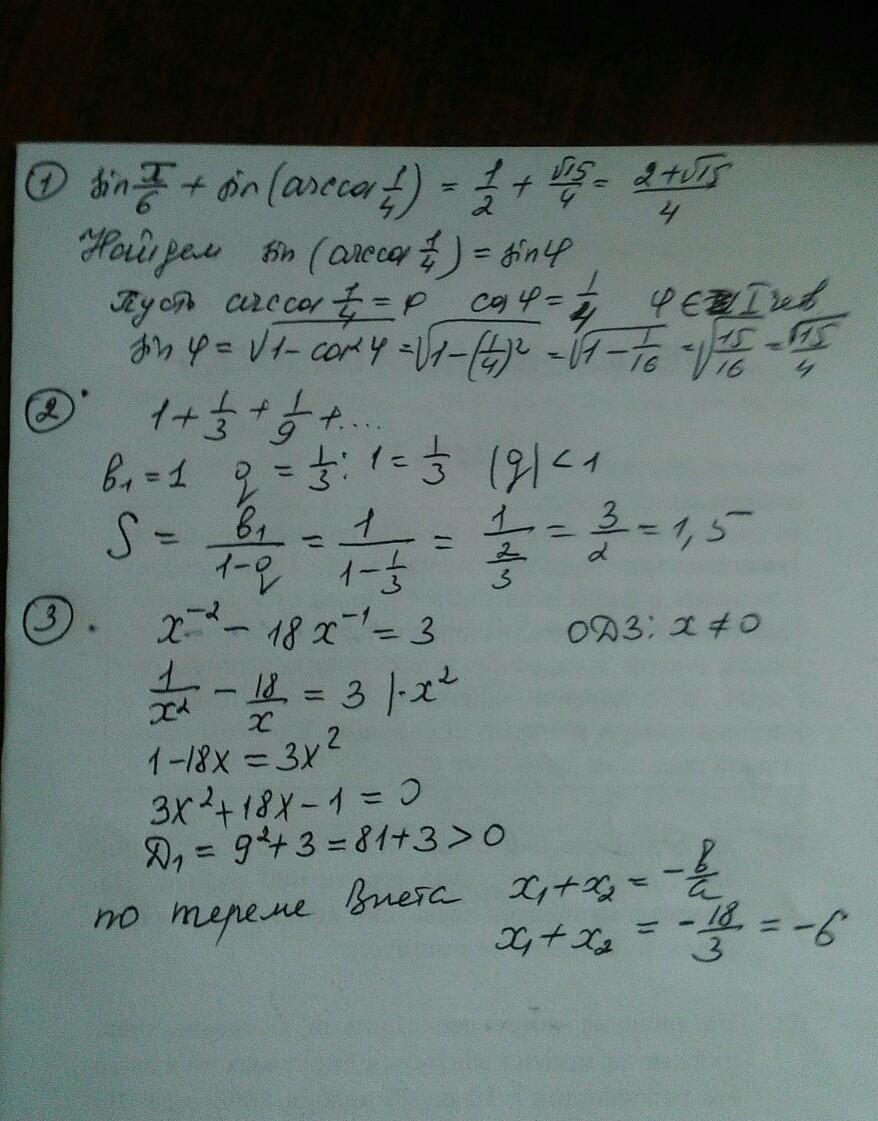 ① sin π/6 + sin (arccos 1/4) = 1/2 + √15/4 = (2+√15)/4
Найдем sin (arccos 1/4) = sin φ
Пусть arccos 1/4 = φ cos φ = 1/4 φ ∈ I чев
sin φ = √(1 - cos² φ) = √(1-(1/4)²) = √(1 - 1/16) = √(15/16) = √15/4
② 1 + 1/3 + 1/9 + ....
b₁ = 1 q = 1/3 : 1 = 1/3 |q| < 1
S = b₁/(1-q) = 1/(1-1/3) = 1/(2/3) = 3/2 = 1,5
③ . x⁻² - 18x⁻¹ = 3 ОДЗ: x ≠ 0
1/x² - 18/x = 3 |·x²
1-18x = 3x²
3x²+18x-1 = 0
Д₁ = 9²+3 = 81+3 > 0
по тереме Виета x₁+x₂ = -b/a
x₁+x₂ = -18/3 = -6